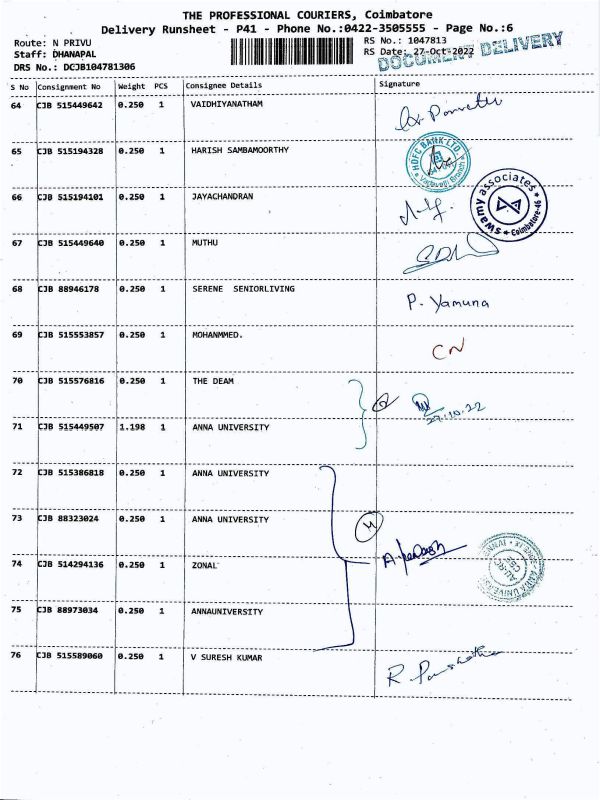 THE PROFESSIONAL COURIERS, Coimbatore
Delivery Runsheet - P41 - Phone No.:0422-3505555 - Page No.:6
Route: N PRIVU RS No.: 1047813
Staff: DHANAPAL RS Date: 27-Oct-2022
DRS No.: DCJB104781306
DOCUMENT DELIVERY
S No Consignment No Weight PCS Consignee Details Signature
64 CJB 515449642 0.250 1 VAIDHIYANATHAM
65 CJB 515194328 0.250 1 HARISH SAMBAMOORTHY
HDFC BANK LTD.
66 CJB 515194101 0.250 1 JAYACHANDRAN
swamy associates
Coimbatore-46
67 CJB 515449640 0.250 1 MUTHU
68 CJB 88946178 0.250 1 SERENE SENIORLIVING P. Yamuna
69 CJB 515553857 0.250 1 MOHANMMED. CN
70 CJB 515576816 0.250 1 THE DEAM
27.10.22
71 CJB 515449507 1.198 1 ANNA UNIVERSITY
72 CJB 515386818 0.250 1 ANNA UNIVERSITY
73 CJB 88323024 0.250 1 ANNA UNIVERSITY
74 CJB 514294136 0.250 1 ZONAL
75 CJB 88973034 0.250 1 ANNAUNIVERSITY
76 CJB 515589060 0.250 1 V SURESH KUMAR